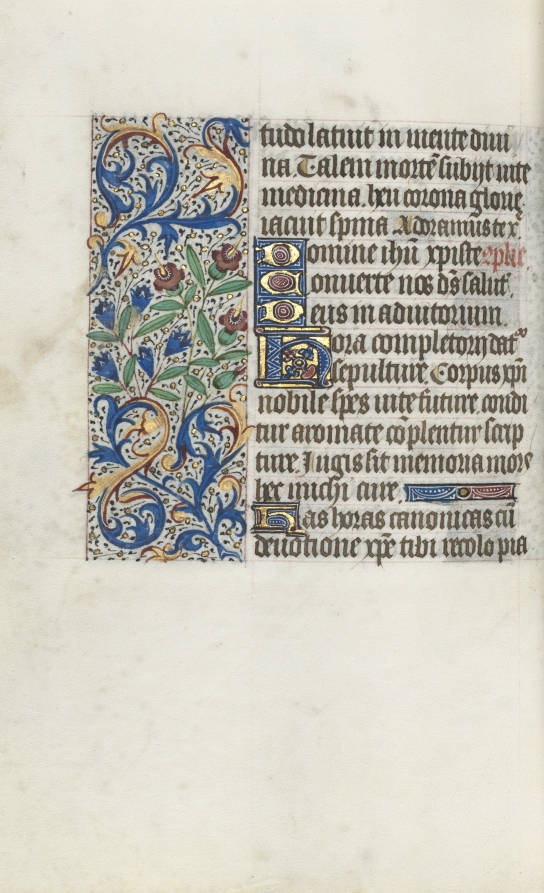 tudo latuit in mente diui
na. Talem mortẽ subijt uite
medicina. heu corona glorię
iacuit spina. Adoramus te x.
Domine ihũ xpiste
Conuerte nos ds̃ salut.
Deus in adiutorium.
Hora completorij dat᷒
sepulture. Corpus xpi
nobile spes uite future. condi
tur aromate cõplentur scrip
ture. Jugis sit memoria mors
hec michi cure.
Has horas canonicas cũ
deuotione xpẽ tibi recolo pia